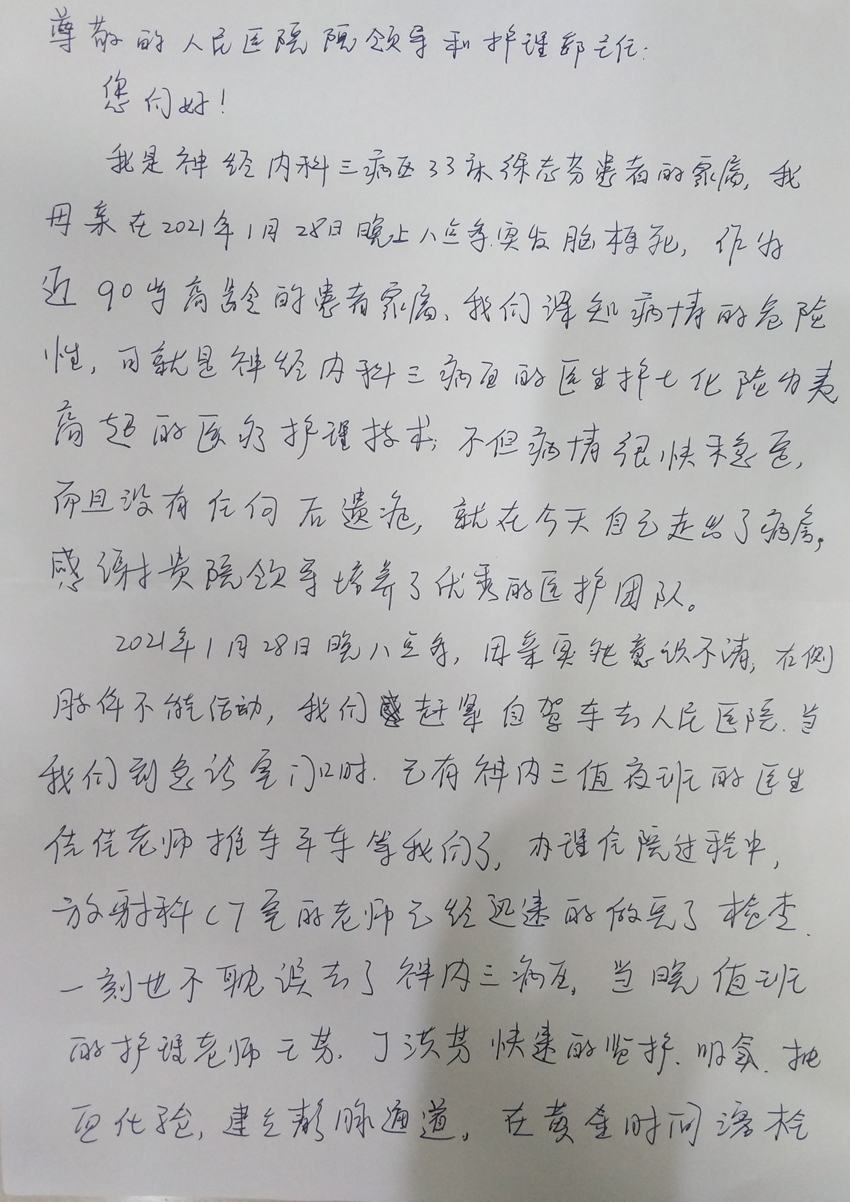 尊敬的人民医院院领导和护理部主任:
您们好!
我是神经内科三病区33床徐志芳患者的家属,我
母亲在2021年1月28日晚上八点多突发脑梗死,作为
近90岁高龄的患者家属、我们深知病情的危险
性,可就是神经内科三病区的医生护士化险为夷
高超的医疗护理技术,不但病情很快稳定,
而且没有任何后遗症,就在今天自己走出了病房。
感谢贵院领导培养了优秀的医护团队。
2021年1月28日晚八点多,母亲突然意识不清,右侧
肢体不能活动,我们赶紧自驾车去人民医院.当
我们到急诊室门口时.已有神内三值夜班的医生
佳佳老师推车平车等我们了,办理住院过程中,
放射科CT室的老师已经迅速的做完了检查.
一刻也不耽误去了神内三病区,当晚值班
的护理老师王芳.丁洪芳快速的监护.吸氧.抽
血化验,建立静脉通道,在黄金时间溶栓